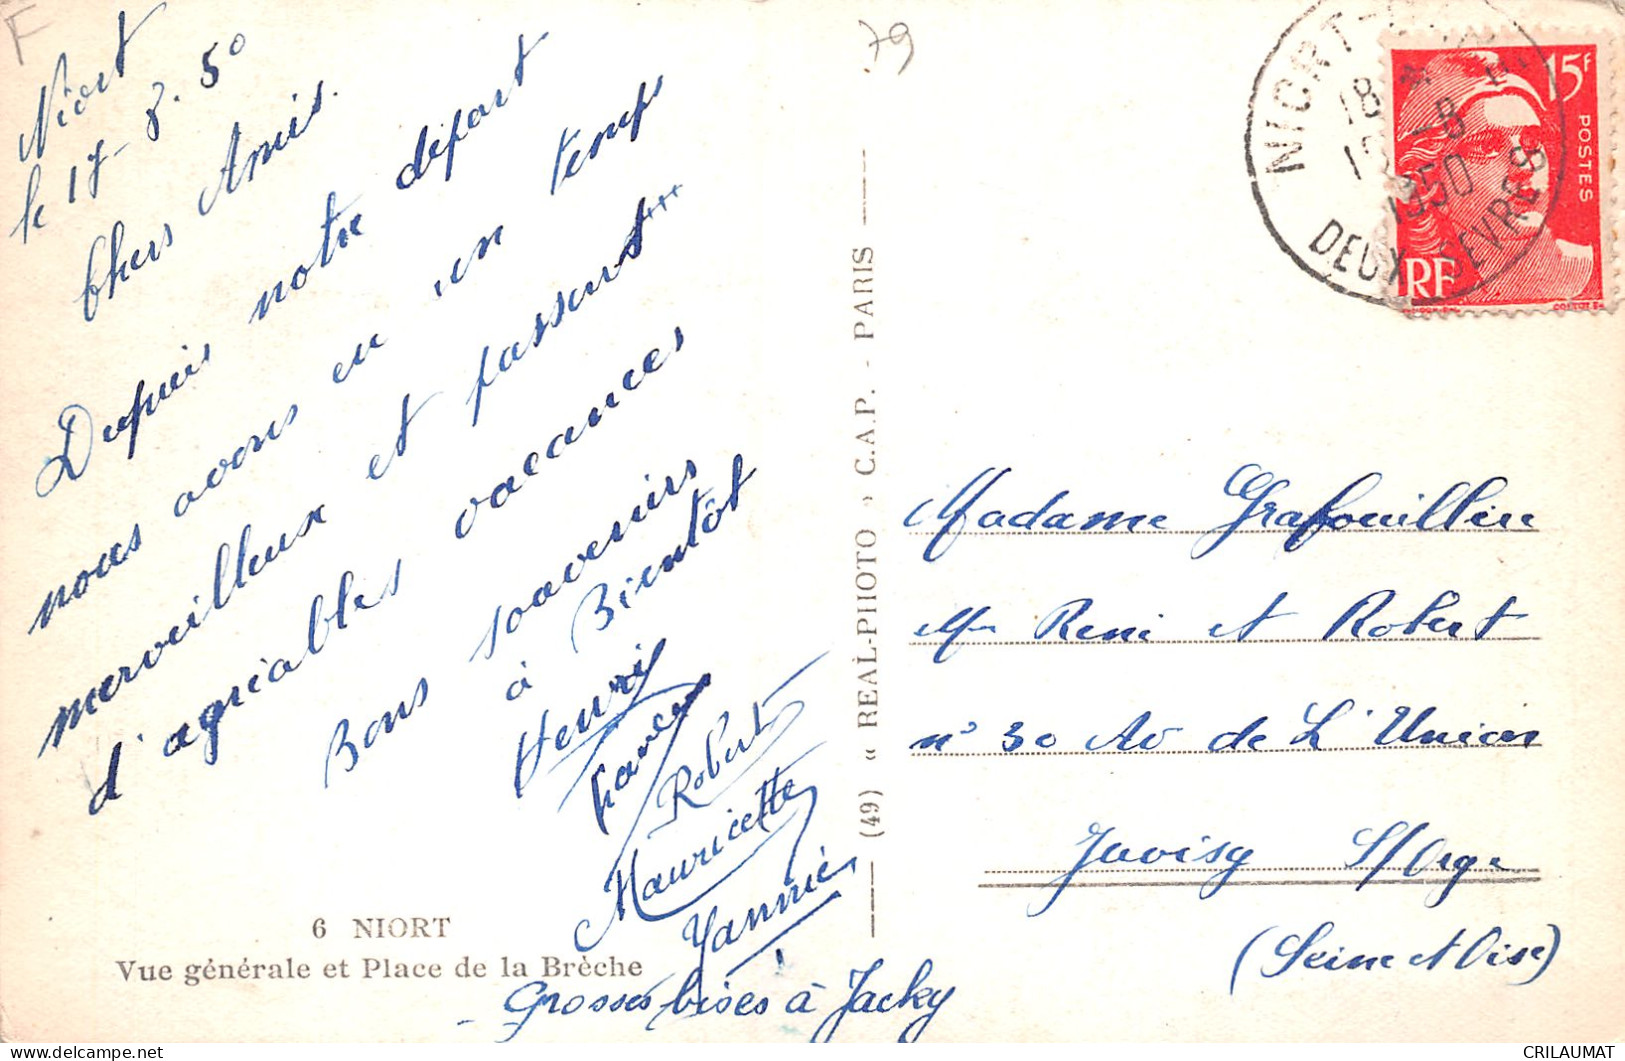 F
79
Niort
le 17-8.50
Chers Amis.
Depuis notre départ
nous avons eu un temps
merveilleux et passant...
d'agréables vacances
Bons souvenirs
à Bientôt
Henri
Robert
Mauricette
Yannie
Grosses bises à Jacky
6 NIORT
Vue générale et Place de la Brèche
(49) « REAL-PHOTO » C.A.P. - PARIS
NIORT
18
-8
1950
DEUX SEVRES
15F
POSTES
RF
Madame Grafouillère
Mr René et Robert
n° 30 Av de L'Union
Juvisy S/Orge
(Seine et Oise)
CRILAUMAT